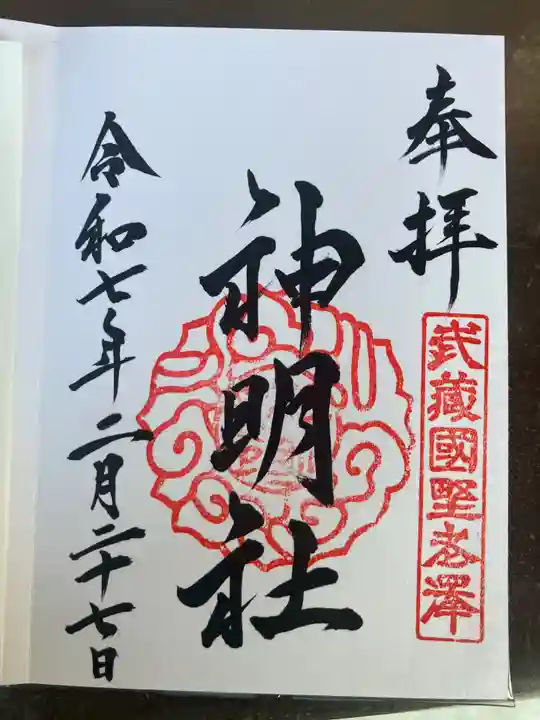 奉拝
武蔵國野老澤
神明社
令和七年二月二十七日